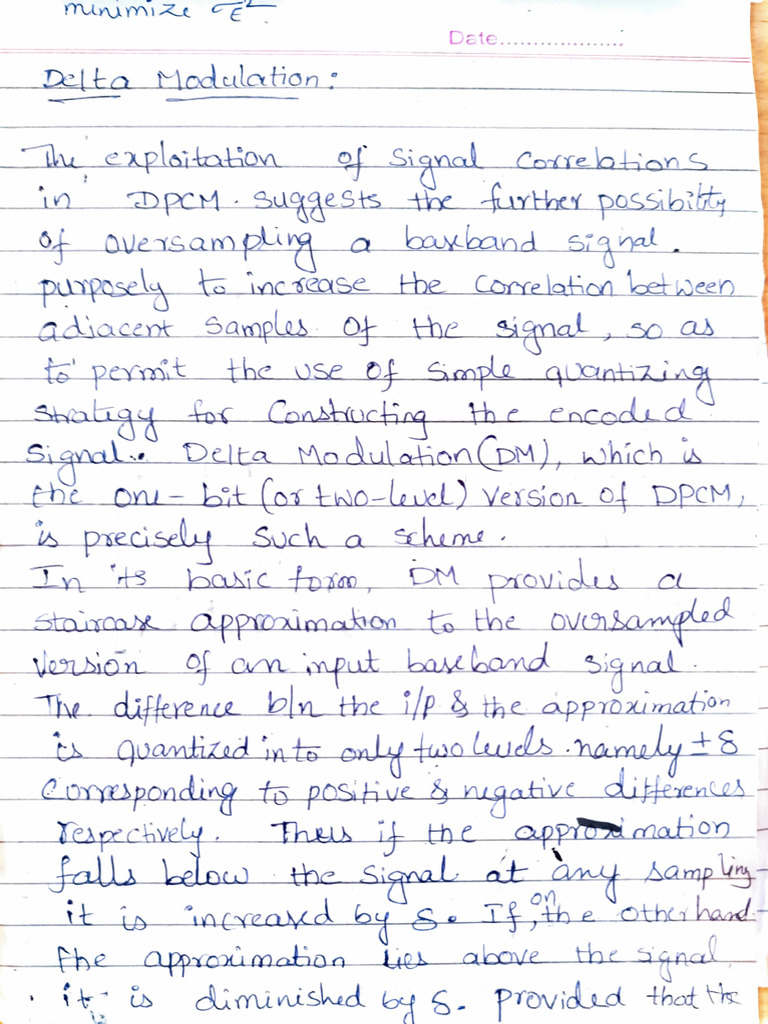 minimize σE²
Date....................
Delta Modulation:
The exploitation of signal correlations
in DPCM. suggests the further possibility
of oversampling a baseband signal.
purposely to increase the correlation between
adjacent samples of the signal, so as
to permit the use of simple quantizing
strategy for constructing the encoded
signal. Delta Modulation (DM), which is
the one-bit (or two-level) version of DPCM,
is precisely such a scheme.
In its basic form, DM provides a
staircase approximation to the oversampled
version of an input baseband signal.
The difference b/n the i/p & the approximation
is quantized into only two levels. namely ± δ
Corresponding to positive & negative differences
respectively. Thus if the approximation
falls below the signal at any sampling
it is increased by δ. If, on the other hand
the approximation lies above the signal,
it is diminished by δ. provided that the